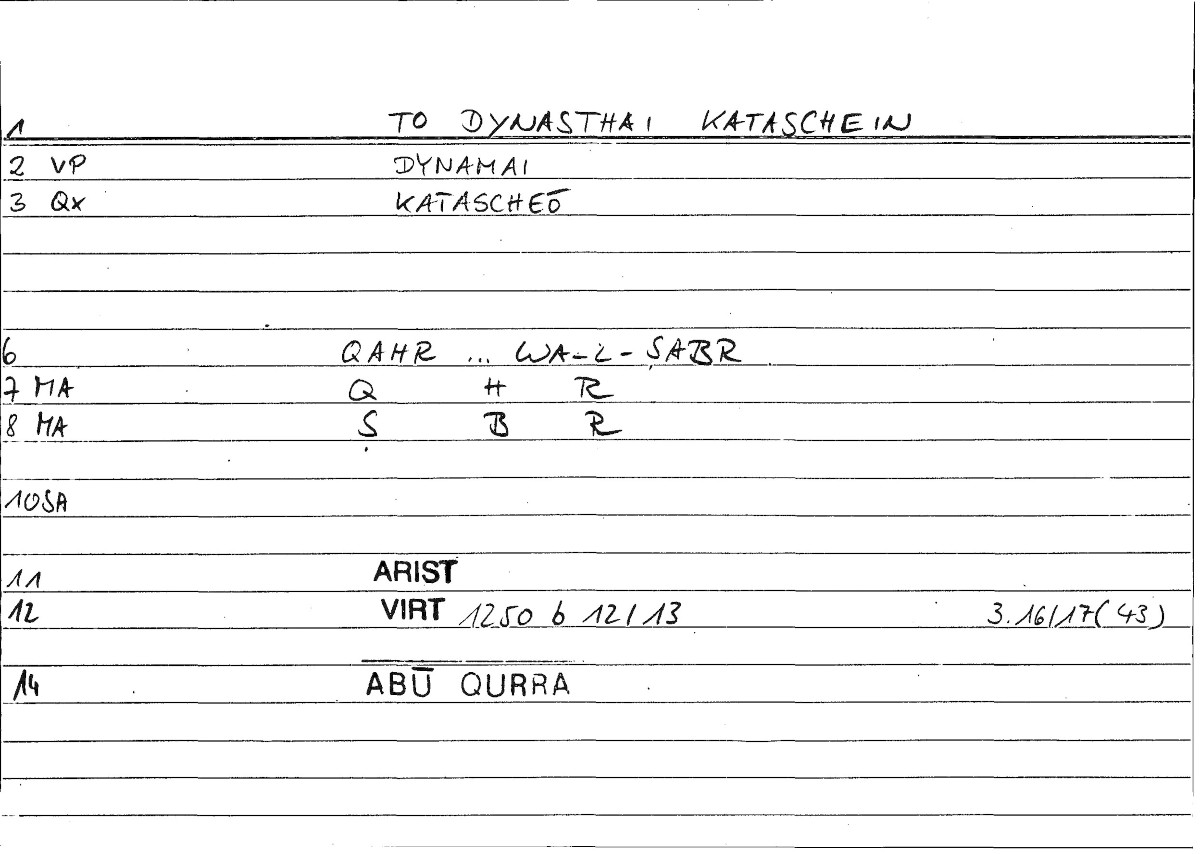 1 TO DYNASTHAI KATASCHEIN
2 VP DYNAMAI
3 Qx KATASCHEŌ
6 QAHR ... WA-L-ṢABR
7 MA Q H R
8 MA Ṣ B R
10SA
11 ARIST
12 VIRT 1250 b 12/13 3.16/17(43)
14 ABŪ QURRA